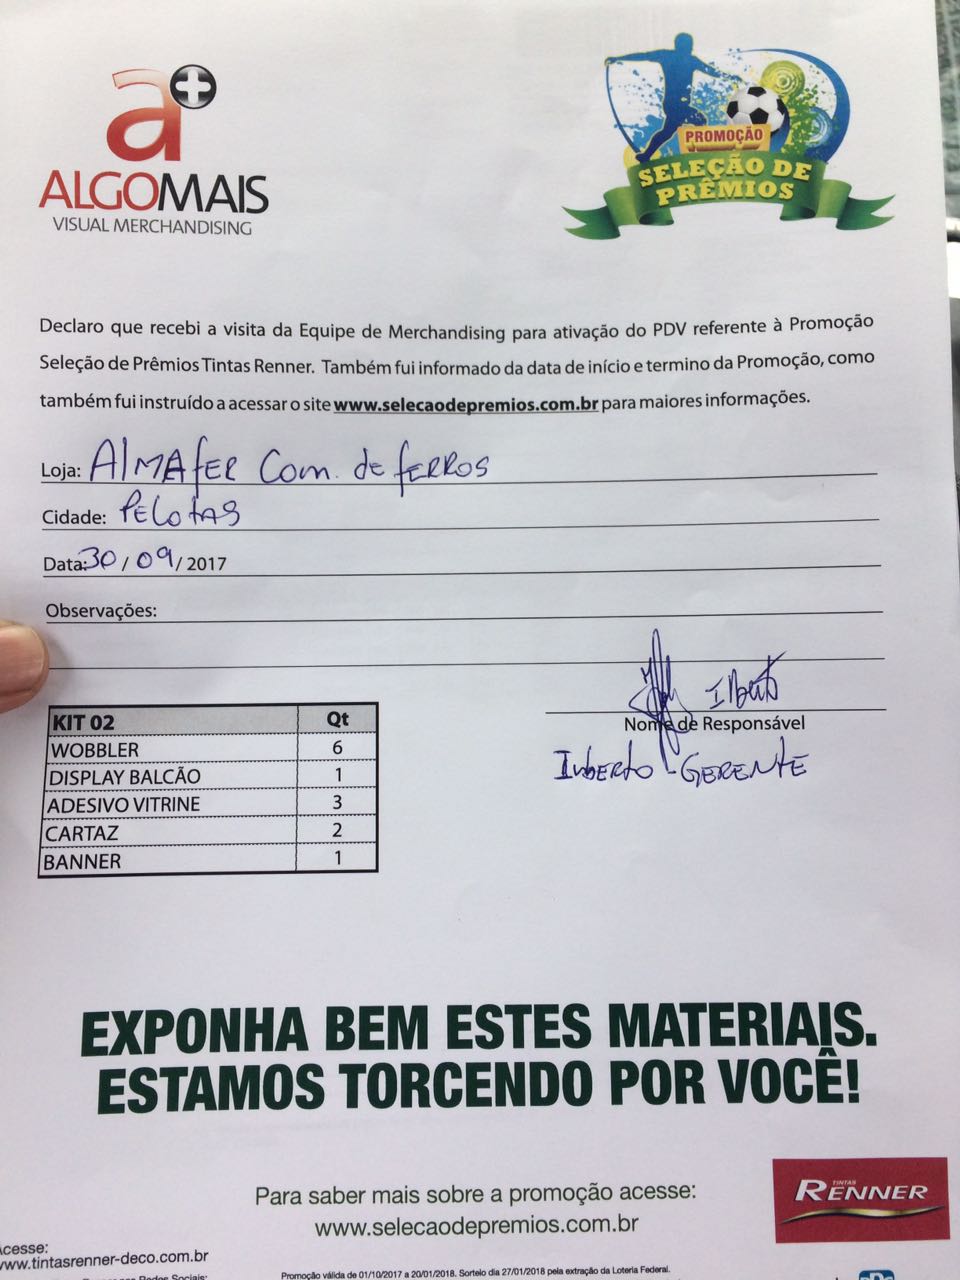 a+
ALGOMAIS
VISUAL MERCHANDISING
PROMOÇÃO
SELEÇÃO DE
PRÊMIOS
Declaro que recebi a visita da Equipe de Merchandising para ativação do PDV referente à Promoção
Seleção de Prêmios Tintas Renner. Também fui informado da data de início e termino da Promoção, como
também fui instruído a acessar o site www.selecaodepremios.com.br para maiores informações.
Loja: AlMAfER Com. de fERROS
Cidade: PELOTAS
Data: 30 / 09 / 2017
Observações:
Nome de Responsável
GERENTE
KIT 02 Qt
WOBBLER 6
DISPLAY BALCÃO 1
ADESIVO VITRINE 3
CARTAZ 2
BANNER 1
EXPONHA BEM ESTES MATERIAIS.
ESTAMOS TORCENDO POR VOCÊ!
Para saber mais sobre a promoção acesse:
www.selecaodepremios.com.br
TINTAS
RENNER
Acesse:
www.tintasrenner-deco.com.br
Redes Sociais:
Promoção válida de 01/10/2017 a 20/01/2018. Sorteio dia 27/01/2018 pela extração da Loteria Federal.